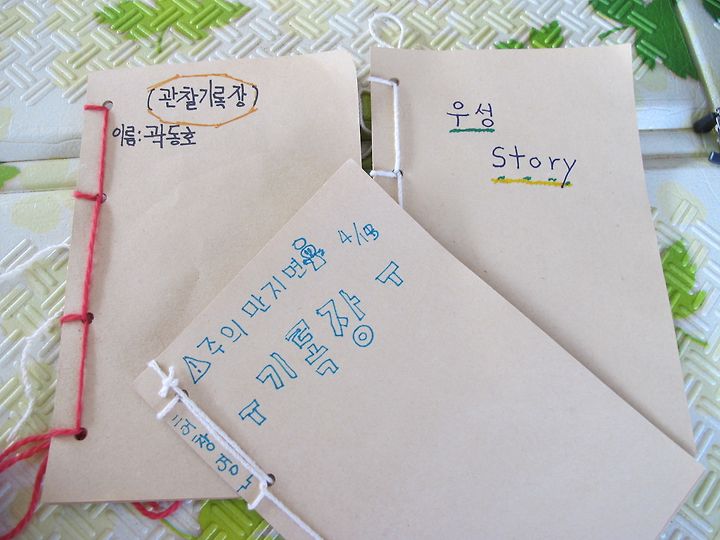 (관찰기록장)
이름: 곽동호
우성
Story
⚠주의 만지면 4/13
ㄱ기록장ㄱ